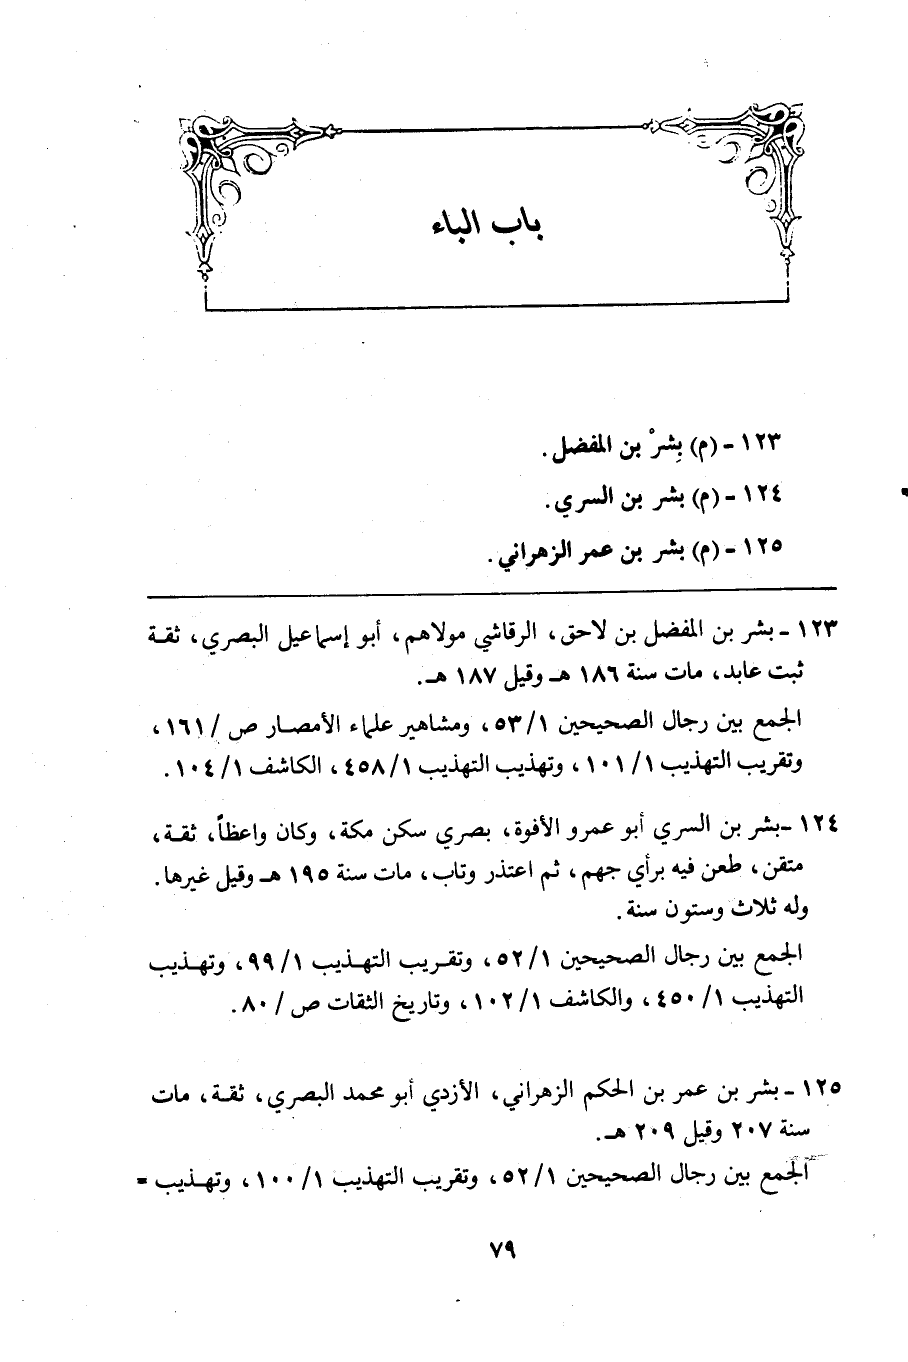 باب الباء
١٢٣ - (م) بِشرْ بن المفضل .
١٢٤ - (م) بشر بن السري .
١٢٥ - (م) بشر بن عمر الزهراني .
١٢٣ - بشر بن المفضل بن لاحق، الرقاشي مولاهم، أبو إسماعيل البصري، ثقة
ثبت عابد، مات سنة ١٨٦ هـ وقيل ١٨٧ هـ.
الجمع بين رجال الصحيحين ١/ ٥٣، ومشاهير علماء الأمصار ص / ١٦١،
وتقريب التهذيب ١/ ١٠١، وتهذيب التهذيب ١/ ٤٥٨، الكاشف ١/ ١٠٤.
١٢٤ -بشر بن السري أبو عمرو الأفوة، بصري سكن مكة، وكان واعظاً، ثقة،
متقن، طعن فيه برأي جهم، ثم اعتذر وتاب، مات سنة ١٩٥ هـ وقيل غيرها.
وله ثلاث وستون سنة.
الجمع بين رجال الصحيحين ١/ ٥٢، وتقريب التهذيب ١/ ٩٩، وتهذيب
التهذيب ١/ ٤٥٠، والكاشف ١/ ١٠٢، وتاريخ الثقات ص / ٨٠.
١٢٥ - بشر بن عمر بن الحكم الزهراني، الأزدي أبو محمد البصري، ثقة، مات
سنة ٢٠٧ وقيل ٢٠٩ هـ.
الجمع بين رجال الصحيحين ١/ ٥٢، وتقريب التهذيب ١/ ١٠٠، وتهذيب =
٧٩